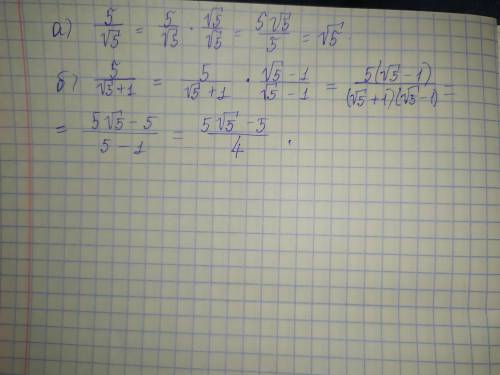 а) 5/√5 = 5/√5 · √5/√5 = 5√5/5 = √5.
б) 5/(√5 + 1) = 5/(√5 + 1) · (√5 - 1)/(√5 - 1) = 5(√5 - 1)/((√5 + 1)(√5 - 1)) =
= (5√5 - 5)/(5 - 1) = (5√5 - 5)/4.